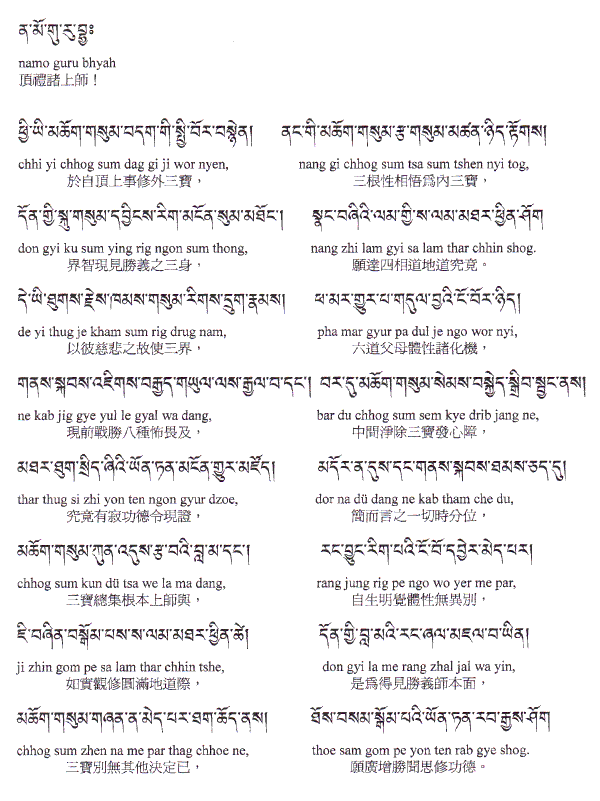 ན་མོ་གུ་རུ་བྷྱཿ
namo guru bhyah
頂禮諸上師！
ཕྱི་ཡི་མཆོག་གསུམ་བདག་གི་སྤྱི་བོར་བསྙེན། ནང་གི་མཆོག་གསུམ་རྩ་གསུམ་མཚན་ཉིད་རྟོགས།
chhi yi chhog sum dag gi ji wor nyen, nang gi chhog sum tsa sum tshen nyi tog,
於自頂上事修外三寶， 三根性相悟爲內三寶，
དོན་གྱི་སྐུ་གསུམ་དབྱིངས་རིག་མངོན་སུམ་མཐོང་། སྣང་བཞིའི་ལམ་གྱི་ས་ལམ་མཐར་ཕྱིན་ཤོག
don gyi ku sum ying rig ngon sum thong, nang zhi lam gyi sa lam thar chhin shog.
界智現見勝義之三身， 願達四相道地道究竟。
དེ་ཡི་ཐུགས་རྗེས་ཁམས་གསུམ་རིགས་དྲུག་རྣམས། ཕ་མར་གྱུར་པ་གདུལ་བྱའི་ངོ་བོར་ཉིད།
de yi thug je kham sum rig drug nam, pha mar gyur pa dul je ngo wor nyi,
以彼慈悲之故使三界， 六道父母體性諸化機，
གནས་སྐབས་འཇིགས་བརྒྱད་གཡུལ་ལས་རྒྱལ་བ་དང་། བར་དུ་མཆོག་གསུམ་སེམས་བསྐྱེད་སྒྲིབ་སྦྱང་ནས།
ne kab jig gye yul le gyal wa dang, bar du chhog sum sem kye drib jang ne,
現前戰勝八種怖畏及， 中間淨除三寶發心障，
མཐར་ཐུག་སྲིད་ཞིའི་ཡོན་ཏན་མངོན་གྱུར་མཛོད། མདོར་ན་དུས་དང་གནས་སྐབས་ཐམས་ཅད་དུ།
thar thug si zhi yon ten ngon gyur dzoe, dor na dü dang ne kab tham che du,
究竟有寂功德令現證， 簡而言之一切時分位，
མཆོག་གསུམ་ཀུན་འདུས་རྩ་བའི་བླ་མ་དང་། རང་བྱུང་རིག་པའི་ངོ་བོ་དབྱེར་མེད་པར།
chhog sum kun dü tsa we la ma dang, rang jung rig pe ngo wo yer me par,
三寶總集根本上師與， 自生明覺體性無異別，
ཇི་བཞིན་བསྒོམ་པས་ས་ལམ་མཐར་ཕྱིན་ཚེ། དོན་གྱི་བླ་མའི་རང་ཞལ་མཇལ་བ་ཡིན།
ji zhin gom pe sa lam thar chhin tshe, don gyi la me rang zhal jal wa yin,
如實觀修圓滿地道際， 是爲得見勝義師本面，
མཆོག་གསུམ་གཞན་ན་མེད་པར་ཐག་ཆོད་ནས། ཐོས་བསམ་སྒོམ་པའི་ཡོན་ཏན་རབ་རྒྱས་ཤོག
chhog sum zhen na me par thag chhoe ne, thoe sam gom pe yon ten rab gye shog.
三寶別無其他決定已， 願廣增勝聞思修功德。